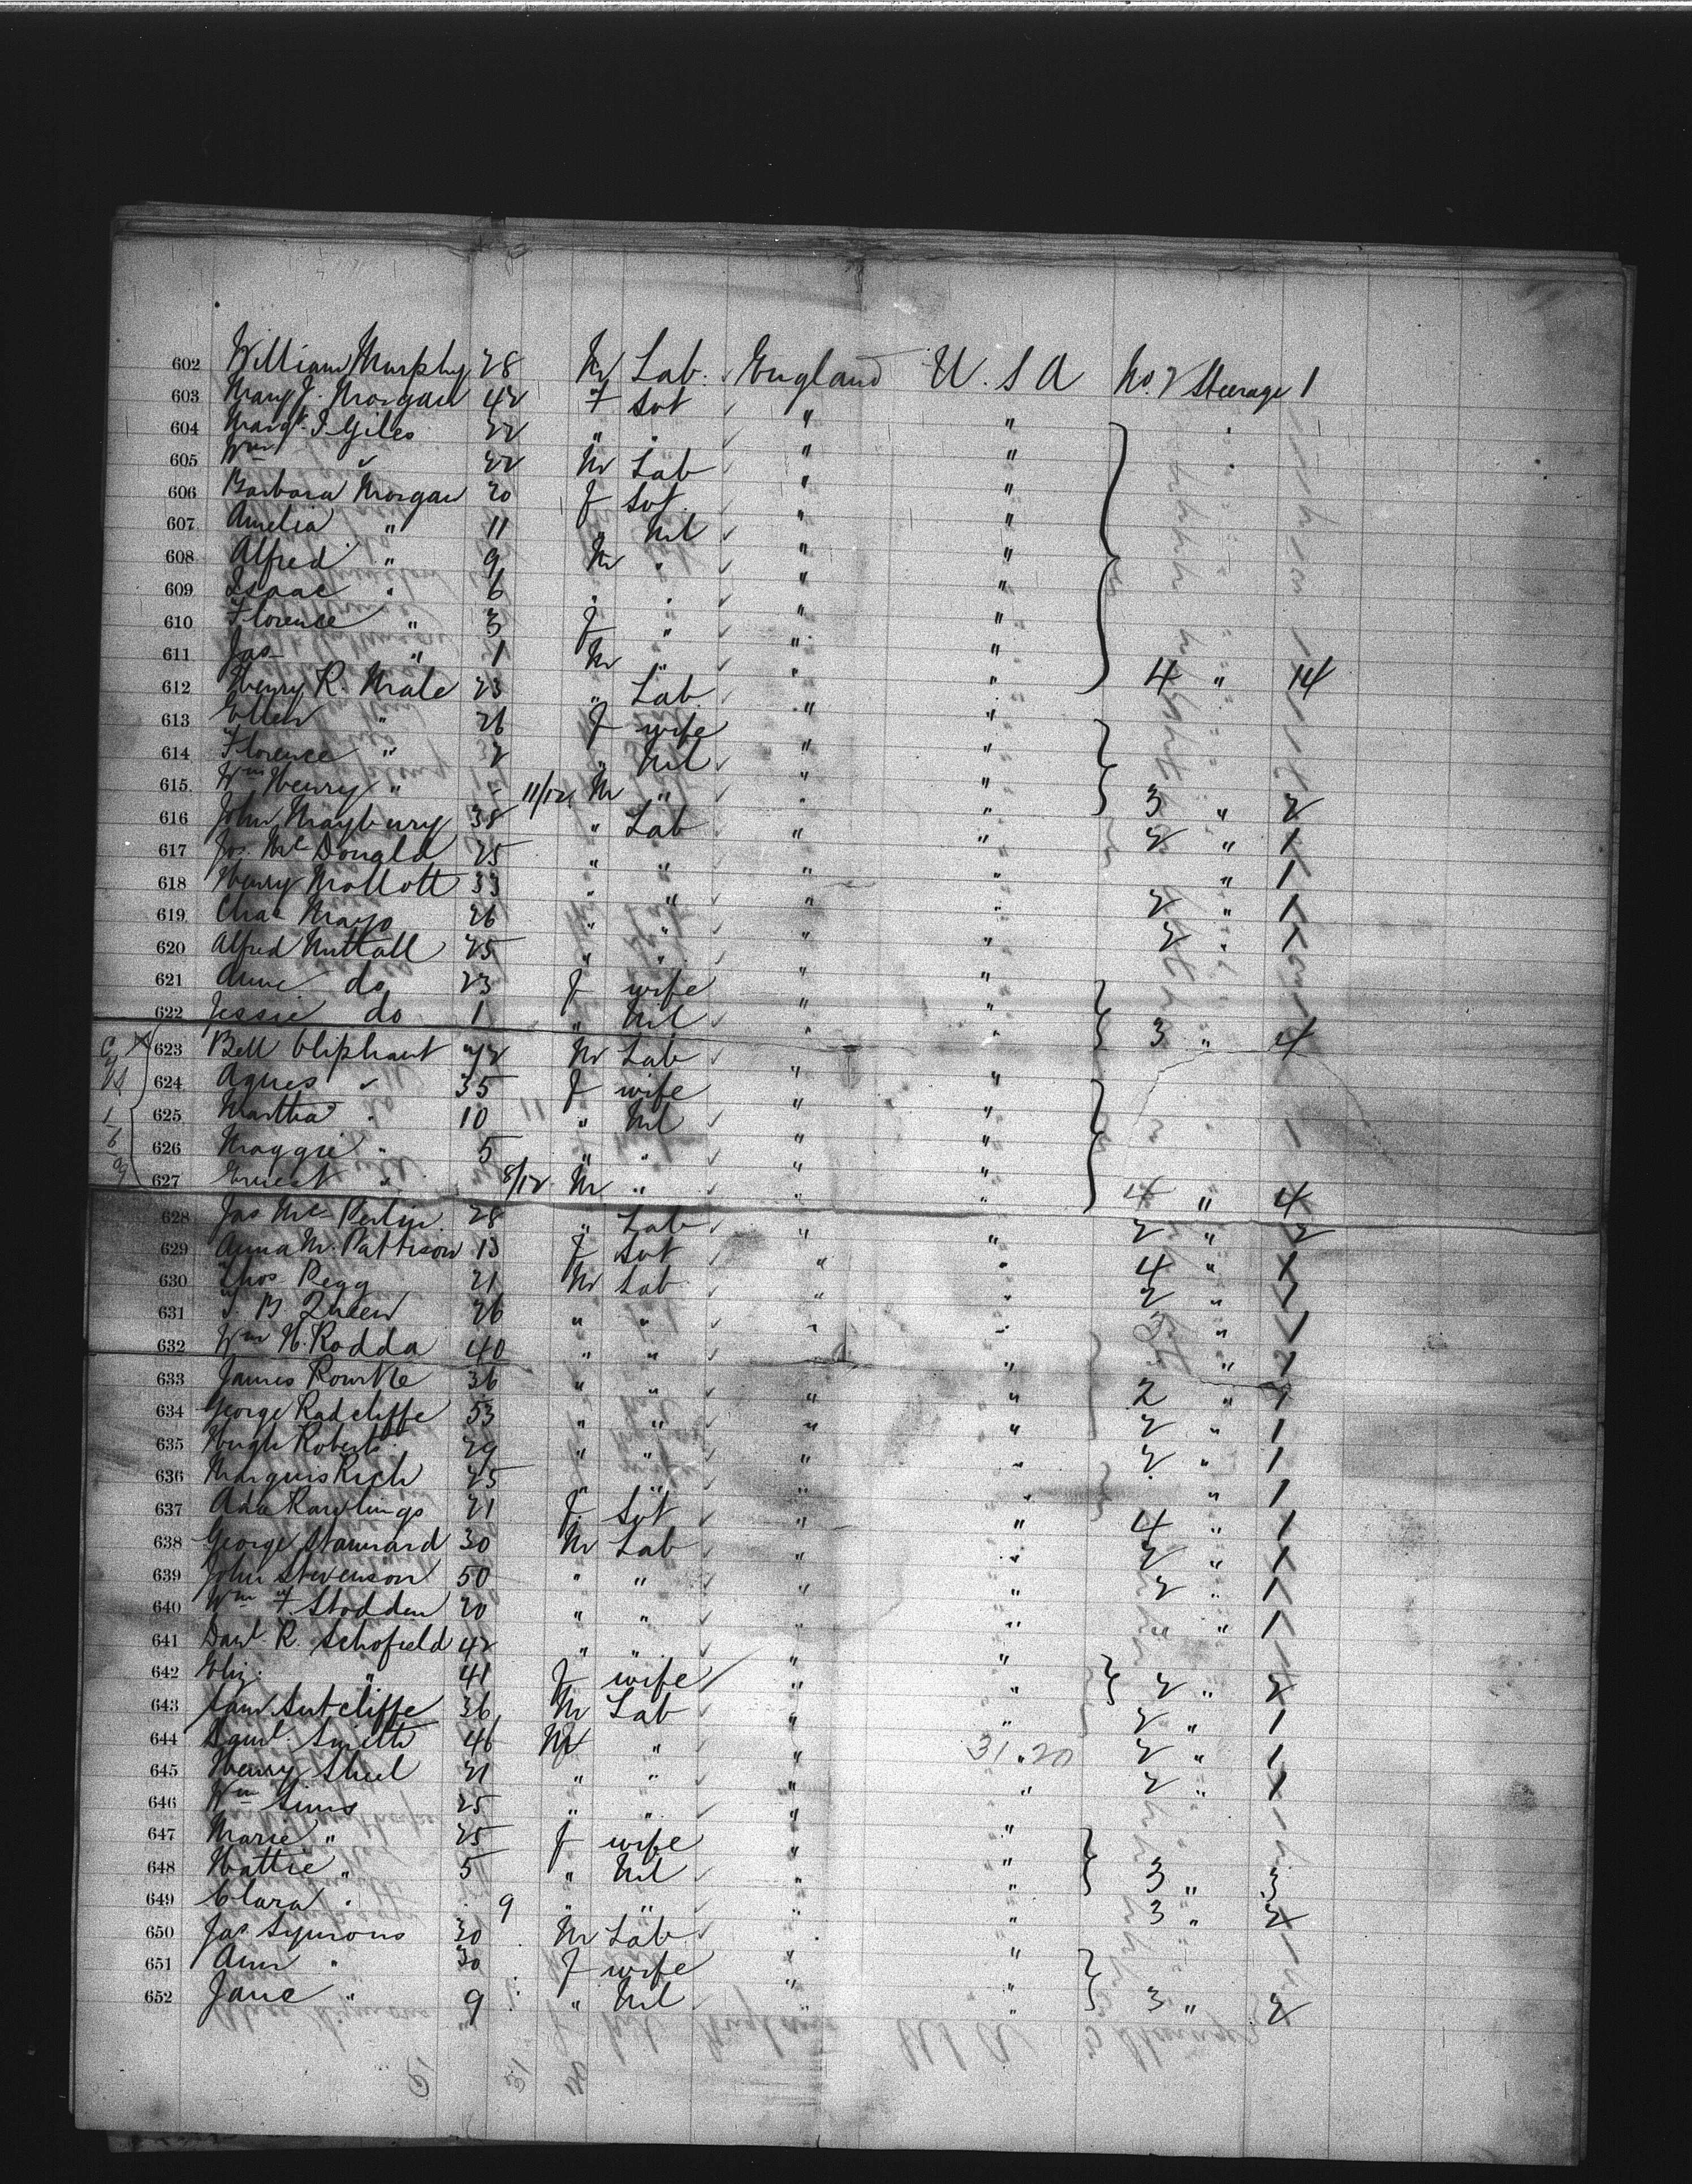 602 William Murphy 28 M Lab. England U.S.A No. 2 Steerage 1
603 Mary J. Morgan 42 F Svt " "
604 Margt. J. Giles 22 " " " "
605 Wm " 22 M Lab " "
606 Barbara Morgan 20 F Svt " "
607 Amelia " 11 " Nil " "
608 Alfred " 9 M " " "
609 Isaac " 6 " " " "
610 Florence " 3 F " " "
611 Jas " 1 M " " " 4 " 14
612 Henry R. Male 23 " Lab " "
613 Ellen " 26 F wife " "
614 Florence " 2 " Nil " "
615 Wm Henry " - 11/12 M " " " 3 " 2
616 John Maybury 38 " Lab " " 2 " 1
617 Jos. McDonald 25 " " " " " 1
618 Henry Mollott 33 " " " " 2 " 1
619 Chas Mayo 26 " " " " 2 " 1
620 Alfred Nuttall 25 " " " "
621 Anne do 23 F wife " "
622 Jessie do 1 " Nil " " 3 " 4
623 Bell Oliphant 42 M Lab " "
624 Agnes " 35 F wife " "
625 Martha " 10 11 " Nil " "
626 Maggie " 5 " " " "
627 Ernest " 8/12 M " " " 4 " 4
628 Jas Mc 28 " Lab " " 2 " 2
629 Anna M. Pattison 13 F Svt " " 4 " 1
630 Thos Pegg 21 M Lab " " 2 " 1
631 J. B Queen 26 " " " " " 1
632 Wm H. Rodda 40 " " " " " 1
633 James Rourke 36 " " " " 2 " 1
634 George Radcliffe 53 " " " " 2 " 1
635 Hugh Roberts 29 " " " " 2 " 1
636 Marquis Rich 25 " " " " " 1
637 Ada Rawlings 21 F Svt " " 4 " 1
638 George Stannard 30 M Lab " " 2 " 1
639 John Stevenson 50 " " " " 2 " 1
640 Wm F. Stodden 20 " " " " " 1
641 Danl. R. Schofield 42 " " " "
642 Eliz. " 41 F wife " " 2 " 2
643 Sam Sutcliffe 36 M Lab " " 2 " 1
644 Saml. Smith 46 M " " 31 " 20 2 " 1
645 Henry Sheel 21 " " " " 2 " 1
646 Wm Sims 25 " " " "
647 Marie " 25 F wife " "
648 Hattie " 5 " Nil " " 3 " 3
649 Clara " 9 " " " " 3 " 2
650 Jas Symons 30 M Lab " "
651 Ann " 30 F wife " "
652 Jane " 9 " Nil " " 3 " 2